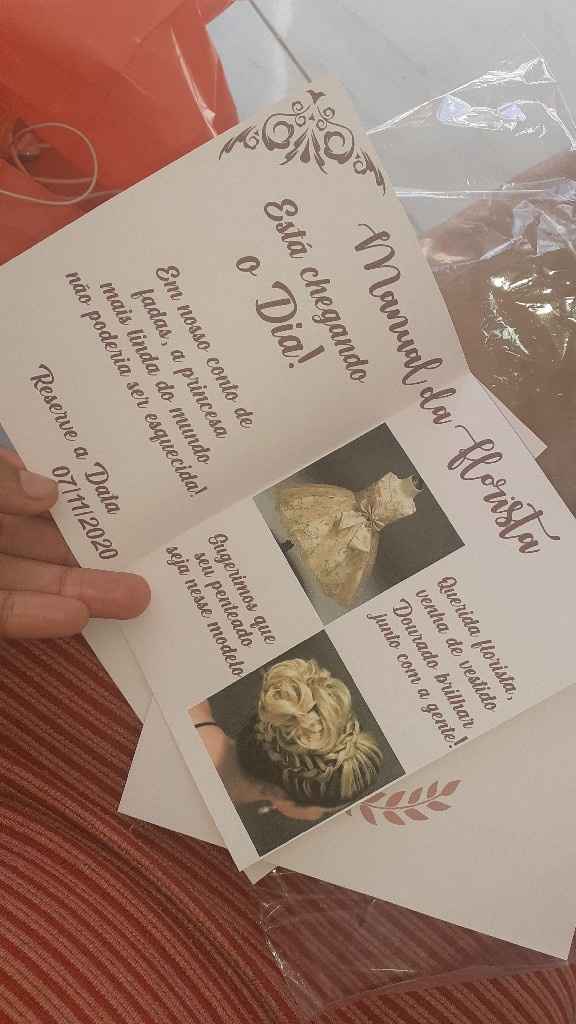 Está chegando
o Dia!
Em nosso conto de
fadas, a princesa
mais linda do mundo
não poderia ser esquecida!
Reserve a Data
07/11/2020
Manual da florista
Querida florista,
venha de vestido
Dourado brilhar
junto com a gente!
Sugerimos que
seu penteado
seja nesse modelo